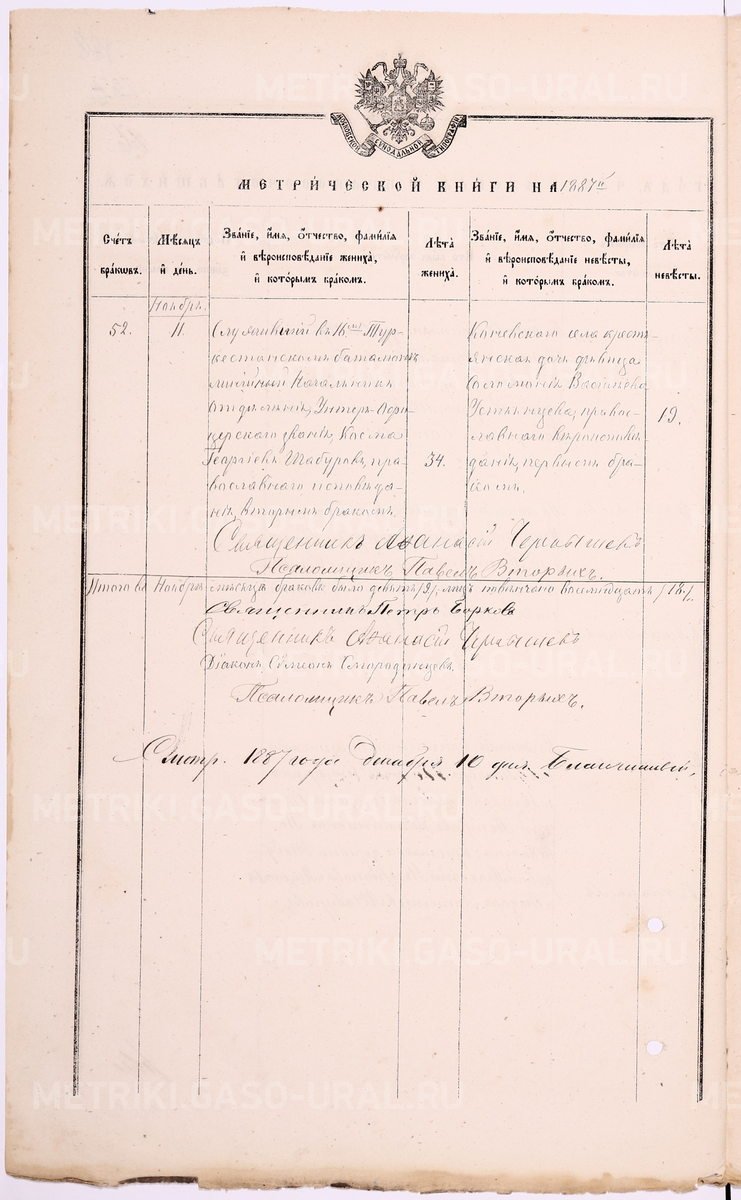 МОСКОВСКОЙ СѴНОДАЛЬНОЙ ТИПОГРАФІИ
МЕТРИ́ЧЕСКОЙ КНИ́ГИ НА 1887 й
Счетъ браковъ.
Мѣсяцъ и день.
Зва́ніе, и́мя, о́тчество, фами́лія и вѣроисповѣ́даніе жениха̀, и кото́рымъ бра́комъ.
Лѣта̀ жениха̀.
Зва́ніе, и́мя, о́тчество, фами́лія и вѣроисповѣ́даніе невѣ́сты, и кото́рымъ бра́комъ.
Лѣта̀ невѣ́сты.
Ноябрь.
52.
11.
Служившій въ 16 мъ Тур-
кестанскомъ баталіонѣ
линейный Начальникъ
отдѣленія, Унтеръ-Офи-
церскаго званія, Косма
Георгіевъ Шабуровъ, пра-
вославнаго исповѣда-
нія, вторымъ бракомъ.
34.
Коневскаго села кресть-
янская дочь дѣвица
Соломонія Васильева
Устьянцева, правос-
лавнаго вѣроисповѣ-
данія, первымъ бра-
комъ.
19.
Священникъ Аѳанасій Чернышевъ
Псаломщикъ Павелъ Вторыхъ.
Итого въ Ноябрѣ мѣсяцѣ браковъ было девять /9/, лицъ повѣнчано восемнадцать /18/.
Священникъ Петръ Борковъ
Священникъ Аѳанасій Чернышевъ
Діаконъ Сѵмеонъ Смородинцевъ.
Псаломщикъ Павелъ Вторыхъ.
Смотр. 1887 года Декабря 10 дня Благочинный,
METRIKI.GASO-URAL.RU